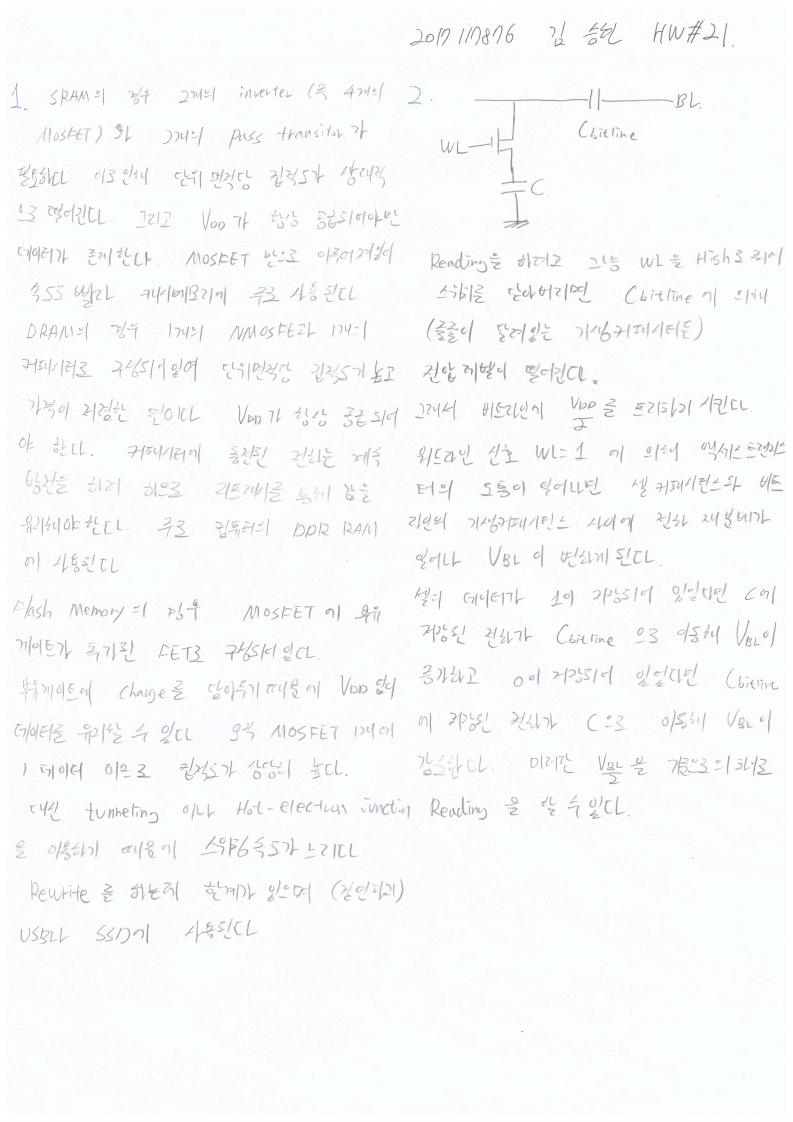 2017117876 김승현 HW#21.
1. SRAM의 경우 2개의 inverter (즉 4개의
MOSFET)와 2개의 pass transitor가
필요하다 이로인해 단위 면적당 집적도가 상대적
으로 떨어진다. 그리고 VDD가 항상 공급되어야만
데이터가 존재한다. MOSFET 만으로 이루어져있어
속도 빨라 캐시메모리에 주로 사용된다
DRAM의 경우 1개의 NMOSFET과 1개의
커패시터로 구성되어있어 단위면적당 집적도가 높고
가격이 저렴한 편이다 VDD가 항상 공급되어
야 한다. 커패시터에 충전된 전하는 계속
방전을 하려 하므로 리프레시를 통해 값을
유지해야한다. 주로 컴퓨터의 DDR RAM
에 사용된다
Flash Memory의 경우 MOSFET에 부유
게이트가 추가된 FET로 구성되어있다.
부유게이트에 charge를 담아두기 때문에 VDD 없이
데이터를 유지할 수 있다 오직 MOSFET 1개에
1 데이터 이므로 집적도가 상당히 높다.
대신 tunneling 이나 Hot-electron junction
을 이용하기 때문에 스위칭속도가 느리다
Rewrite를 하는데 한계가 있으며 (절연파괴)
USB나 SSD에 사용된다
2.
BL.
Cbitline
WL
C
Reading을 하려고 그냥 WL을 High로 줘서
스위치를 닫아버리면 Cbitline에 의해
(줄줄이 달려있는 기생커패시터들)
전압레벨이 떨어진다.
그래서 비트라인에 VDD/2를 프리차지 시킨다
워드라인 신호 WL=1 에 의해 액세스트랜지스
터의 도통이 일어나면 셀 커패시턴스와 비트
라인의 기생커패시턴스 사이에 전하 재분배가
일어나 VBL이 변하게된다.
셀의 데이터가 1이 저장되어 있었다면 C에
저장된 전하가 Cbitline으로 이동해 VBL이
증가하고 0이 저장되어 있었다면 Cbitline
에 저장된 전하가 C으로 이동해 VBL이
감소한다. 이러한 VBL/2을 기준으로의 차이로
Reading을 할 수 있다.